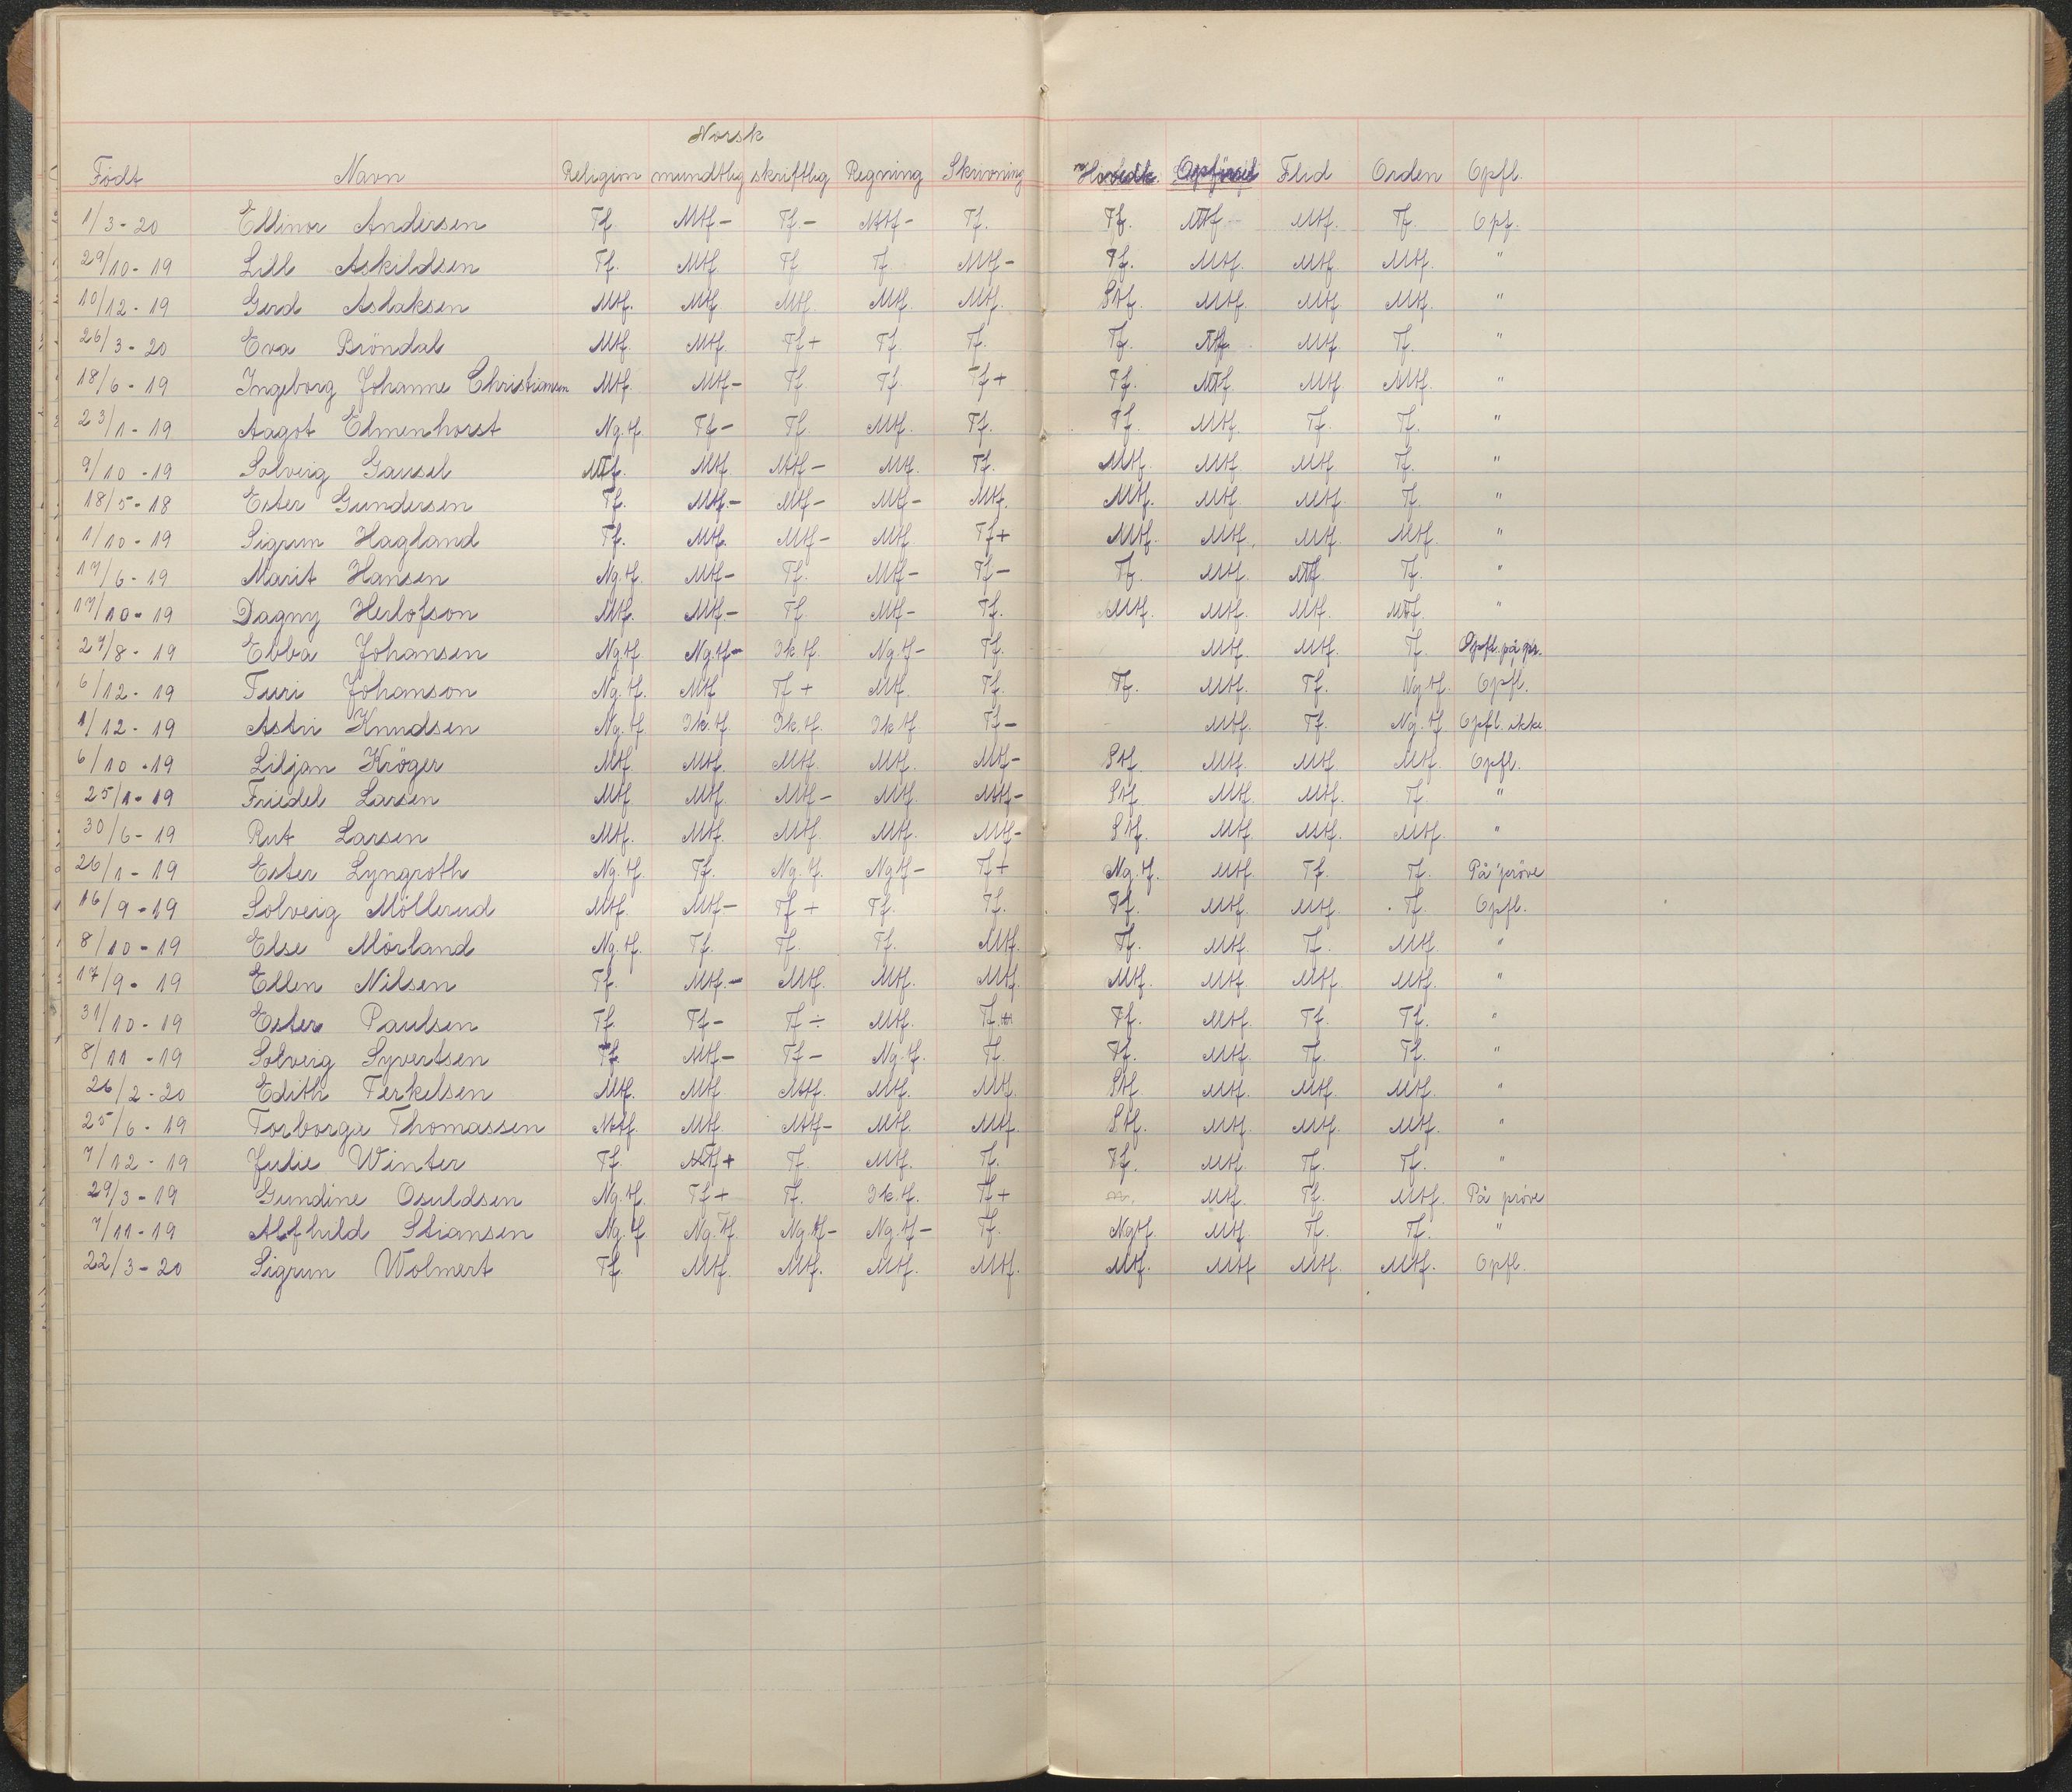 Norsk
Födt Navn Religion mundtlig skriftlig Regning Skrivning Hovedk. Opförsel Flid Orden Opfl.
1/3-20 Ellinor Andersen Tf. Mtf- Tf.- Mtf- Tf. Tf. Mtf Mtf. Tf. Opf.
29/10-19 Lill Askildsen Tf. Mtf Tf Tf Mtf- Tf. Mtf. Mtf. Mtf. "
10/12-19 Gerd Aslaksen Mtf. Mtf Mtf Mtf. Mtf. Stf. Mtf. Mtf Mtf. "
26/3-20 Eva Bröndal Mtf. Mtf. Tf+ Tf. Tf. Tf. Mtf. Mtf. Tf. "
18/6-19 Ingeborg Johanne Christiansen Mtf. Mtf- Tf. Tf. Tf+ Tf. Mtf. Mtf. Mtf. "
23/1-19 Aagot Elmenhorst Ng.tf. Tf- Tf Mtf. Tf. Tf. Mtf. Tf. Tf. "
9/10-19 Solveig Gausel Mtf. Mtf Mtf- Mtf. Tf. Mtf. Mtf Mtf Tf. "
18/5-18 Ester Gundersen Tf. Mtf.- Mtf- Mtf- Mtf. Mtf. Mtf. Mtf. Tf. "
1/10-19 Sigrun Hagland Tf. Mtf. Mtf- Mtf. Tf+ Mtf. Mtf. Mtf. Mtf. "
17/6-19 Marit Hansen Ng.tf. Mtf- Tf. Mtf- Tf- Tf. Mtf. Mtf Tf. "
17/10-19 Dagny Herlofson Mtf. Mtf- Tf. Mtf- Tf. Mtf. Mtf. Mtf. Mtf. "
27/8-19 Ebba Johansen Ng.tf. Ng.tf- Ik.tf. Ng.tf- Tf. Mtf. Mtf. Tf. Opfl. på pr.
6/12-19 Turi Johanson Ng.tf. Mtf Tf+ Mtf. Tf. Tf. Mtf. Tf. Ng.tf. Opfl.
1/12-19 Astri Knudsen Ng.tf. Ik.tf. Ik.tf. Ik.tf Tf- Mtf. Tf. Ng.tf Opfl. ikke
6/10-19 Liljan Kröger Mtf. Mtf. Mtf. Mtf. Mtf- Stf. Mtf. Mtf. Mtf. Opfl.
25/1-19 Friedel Larsen Mtf Mtf. Mtf- Mtf. Mtf- Stf Mtf. Mtf. Tf "
30/6-19 Rut Larsen Mtf. Mtf. Mtf. Mtf. Mtf- Stf. Mtf Mtf. Mtf. "
26/1-19 Ester Lyngroth Ng.tf. Tf. Ng.tf. Ng.tf- Tf+ Ng.tf. Mtf Tf. Tf. På pröve
16/9-19 Solveig Möllerud Mtf. Mtf- Tf+ Tf. Tf. Tf. Mtf. Mtf. Tf. Opfl.
8/10-19 Else Mörland Ng.tf. Tf. Tf. Tf. Mtf. Tf. Mtf. Tf. Mtf. "
17/9-19 Ellen Nilsen Tf. Mtf.- Mtf. Mtf. Mtf. Mtf. Mtf. Mtf. Mtf. "
31/10-19 Ester Paulsen Tf. Tf- Tf÷ Mtf. Tf.+ Tf. Mtf. Tf. Tf. "
8/11-19 Solveig Syvertsen Tf. Mtf- Tf- Ng.tf. Tf. Tf. Mtf. Tf. Tf. "
26/2-20 Edith Terkelsen Mtf. Mtf Mtf. Mtf. Mtf. Stf. Mtf. Mtf. Mtf. "
25/6-19 Torborga Thomassen Mtf. Mtf. Mtf- Mtf. Mtf. Stf. Mtf. Mtf. Mtf. "
7/12-19 Julie Winter Tf. Mtf+ Tf. Mtf. Tf. Tf. Mtf. Tf. Tf. "
29/3-19 Gundine Osuldsen Ng.tf. Tf+ Tf. Ik.tf. Tf+ Mtf. Tf. Mtf. På pröve
7/11-19 Alfhild Stiansen Ng.tf Ng.tf. Ng.tf- Ng.tf- Tf. Ngtf. Mtf. Tf. Tf. "
22/3-20 Sigrun Wolmert Tf. Mtf. Mtf. Mtf. Mtf. Mtf. Mtf Mtf. Mtf. Opfl.